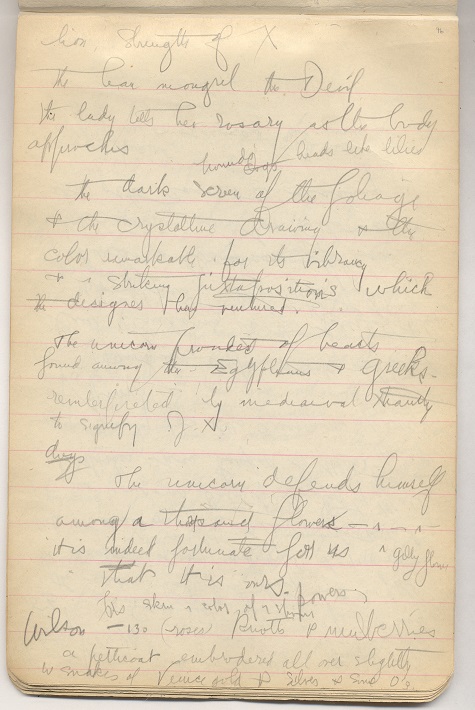 lion, Strength of X
the lion mongrel the Devil
the lady tells her rosary as the body
approches
hounds heads like lilies
the dark screen of the foliage
& the crystalline drawing & the
color remarkable for its vibrancy
& striking juxtapositions which
the designer has ventured.
The unicorn of beasts
found among the Egyptians & Greeks
by mediaeval
to signify J. X.
dogs
The unicorn defends himself
among/a thousand flowers
it is indeed fortunate for us
that it is ours.
his skin color of flowers
Wilson - 130 P mulberries
a petticoat embrodered all over slightly
w snakes of Venice gold & silver & some O's.